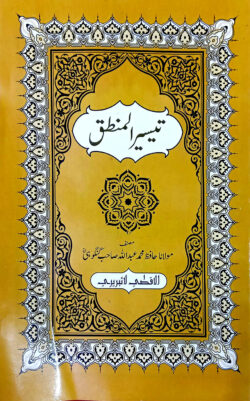 تیسیر المنطق
مصنف
مولانا حافظ محمد عبداللہ صاحب گنگوہیؒ
الاقصٰی لائبریری